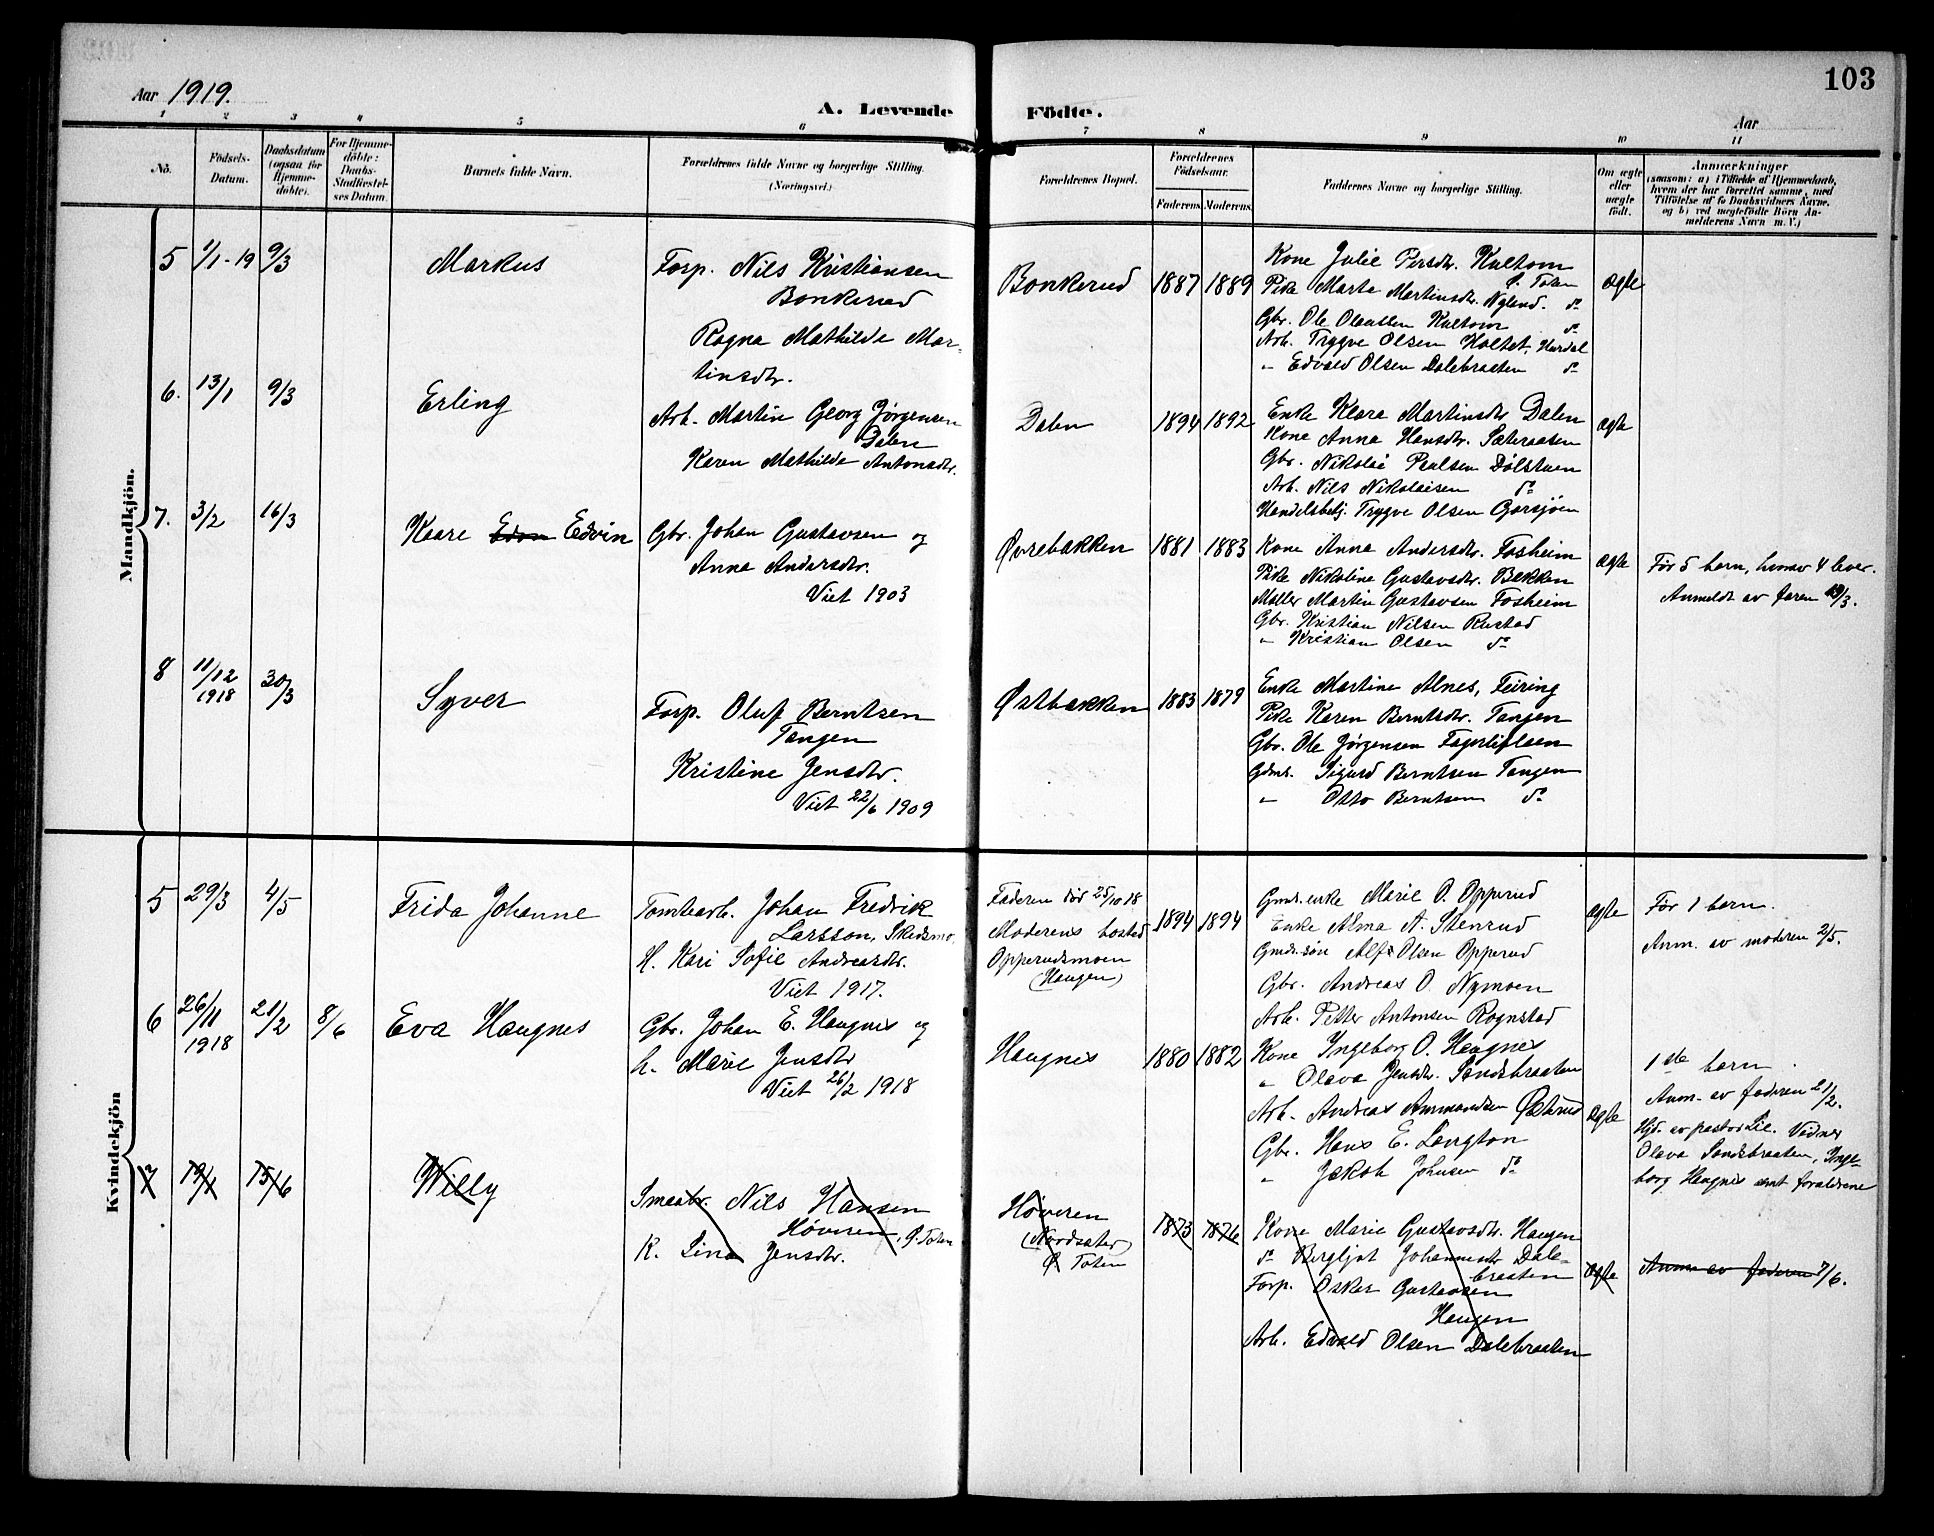 103
Aar 1919.
A. Levende Födte.
Aar
1 2 3 4 5 6 7 8 9 10 11
No.
Födsels-
Datum.
Daabsdatum
(ogsaa for
Hjemme-
döbte).
For Hjemme-
döbte:
Daabs-
Stadfæstel-
ses Datum.
Barnets fulde Navn.
Forældrenes fulde Navne og borgerlige Stilling.
(Næringsvei.)
Forældrenes Bopæl.
Forældrenes
Födselsaar.
Faderens. Moderens.
Faddernes Navne og borgerlige Stilling.
Om ægte
eller
uægte
födt.
Anmærkninger
(saasom: a) i Tilfælde af Hjemmedaab,
hvem der har forrettet samme, med
Tilföielse af to Daabsvidners Navne.
og b) ved uægtefödte Börn An-
melderens Navn m. V.)
Mandkjön.
5 1/1-19 9/3 Markus
Forp. Nils Kristiansen
Bonkerud
Ragna Mathilde Mar-
tinsdtr.
Bonkerud 1887 1889
Kone Julie Persdtr. Kultom
Ø. Toten
Pike Marta Martinsdtr. Nylend. do
Gbr. Ole Olaussen Kultom do
Arb. Trygve Olsen Holtet, Hurdal
" Edvald Olsen Dalebraaten do
ægte
6. 13/1 9/3 Erling
Arb. Martin Georg Jørgensen
Dalen
Karen Mathilde Antonsdtr.
Dalen 1894 1892
Enke Klara Martinsdtr Dalen
Kone Anna Hansdtr. Sæteraasen
Gbr. Nikolai Paulsen Dølstuen
Arb. Nils Nikolaisen do
Handelsbetj. Trygve Olsen Garsjøen
ægte
7. 3/2 16/3 Kaare Edvin
Gbr. Johan Gustavsen og
Anna Andersdtr.
Viet 1903
Øvrebakken 1881 1883
Kone Anna Andersdtr. Fosheim
Pike Nikoline Gustavsdtr. Bakken
Møller Martin Gustavsen Fosheim
Gbr. Kristian Nilsen Rustad
" Kristian Olsen do
ægte
Før 5 barn, hvorav 4 lever.
Anmeldt av faren 13/3.
8 11/12 1918 30/3 Syver
Forp. Oluf Berntsen
Tangen
Kristine Jensdtr.
Viet 22/6 1909
Østbakken 1883 1879
Enke Martine Alnes, Feiring
Pike Karen Berntsdtr. Tangen
Gbr. Ole Jørgensen
Gdms. Sigurd Berntsen Tangen
" Otto Berntsen do
Kvindekjön
5 29/3 4/5 Frida Johanne
Tomtearb. Johan Fredrik
Larsson, Skedsmo.
H. Kari Sofie Andreasdtr.
Viet 1917.
Faderen død 25/10 18
Moderens bosted
Opperudsmoen
(Haugen)
1894 1894
Gmds.enke Marie O. Opperud
Enke Alma A. Stenrud
Gmds.søn Alf Olsen Opperud
Gbr. Andreas O. Nymoen
Arb. Petter Antonsen Rognstad
ægte
Før 1 barn.
Anm. av moderen 2/5.
6 26/11 1918 21/2 8/6 Eva Haugnes
Gbr. Johan E. Haugnes og
h. Marie Jensdtr
Viet 26/2 1918
Haugnes 1880 1882
Kone Ingeborg O. Haugnes
" Olava Jensdtr. Sandsbraaten
Arb. Andreas Ammundsen Østrud
Gbr. Hans E. Langton
" Jakob Johnsen do
ægte
1ste barn.
Anm. av faderen 21/2.
Hjd. av pastor Lie. Vidner
Olava Sandsbraaten, Inge-
borg Haugnes samt forældrene
7 13/4 15/6 Willy
Smaabr. Nils Hansen
Høveren, Ø. Toten
K. Lina Jensdtr.
Høveren
(Nordsæter)
Ø Toten
1873 1876
Kone Marie Gustavsdtr. Haugen
do Bergljot Johannesdtr Dale-
braaten
Forp. Oskar Gustavsen
Haugen
Arb. Edvald Olsen Dalebraaten
ægte
Anm. av faderen 7/6.